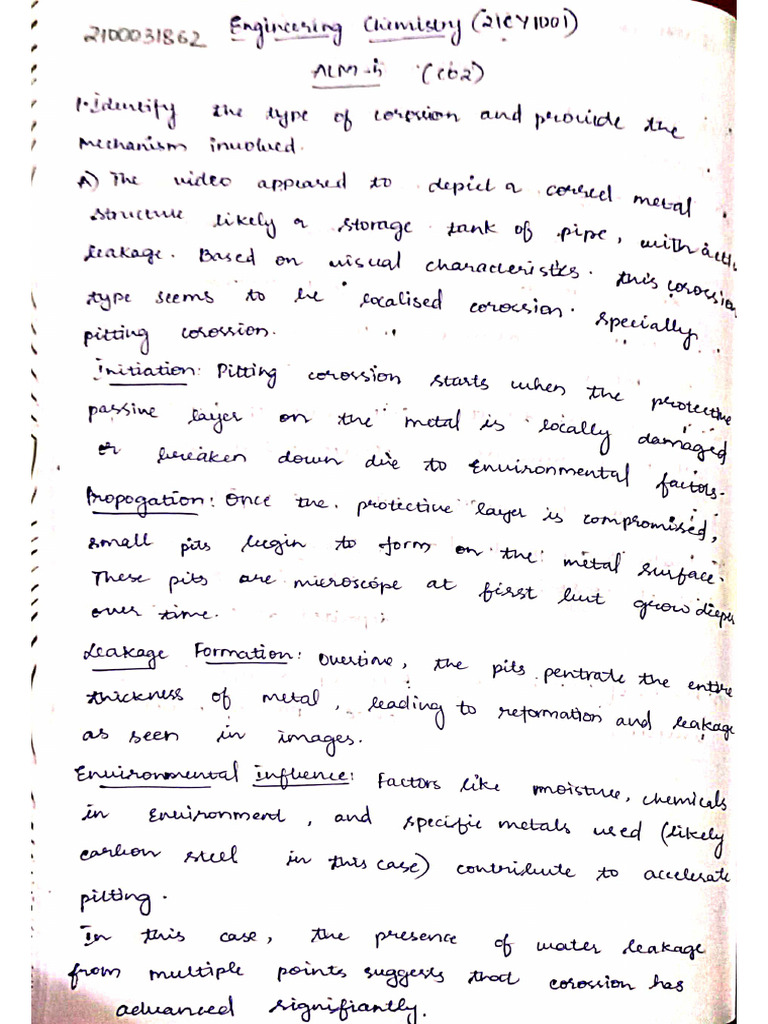 2100031862 Engineering Chemistry (21CY1001)
ALM-5 (CO2)
1. Identify the type of corossion and provide the
mechanism involved.
A) The video appeared to depict a corred metal
structure likely a storage tank of pipe, with acti
leakage. Based on visual characteristics. This corossion
type seems to be localised corossion. specially
pitting corossion.
Initiation: Pitting corossion starts when the protective
passive layer on the metal is locally damaged
or breaken down due to Environmental factors.
Propogation: Once the protective layer is compromised,
small pits begin to form on the metal surface.
These pits are microscope at first but grow deeper
over time.
Leakage Formation: Overtime, the pits pentrate the entire
thickness of metal, leading to reformation and leakage
as seen in images.
Environmental influence: Factors like moisture, chemicals
in Environment, and specific metals used (likely
carbon steel in this case) contribute to accelerate
pitting.
In this case, the presence of water leakage
from multiple points suggests that corossion has
advanced signifiantly.